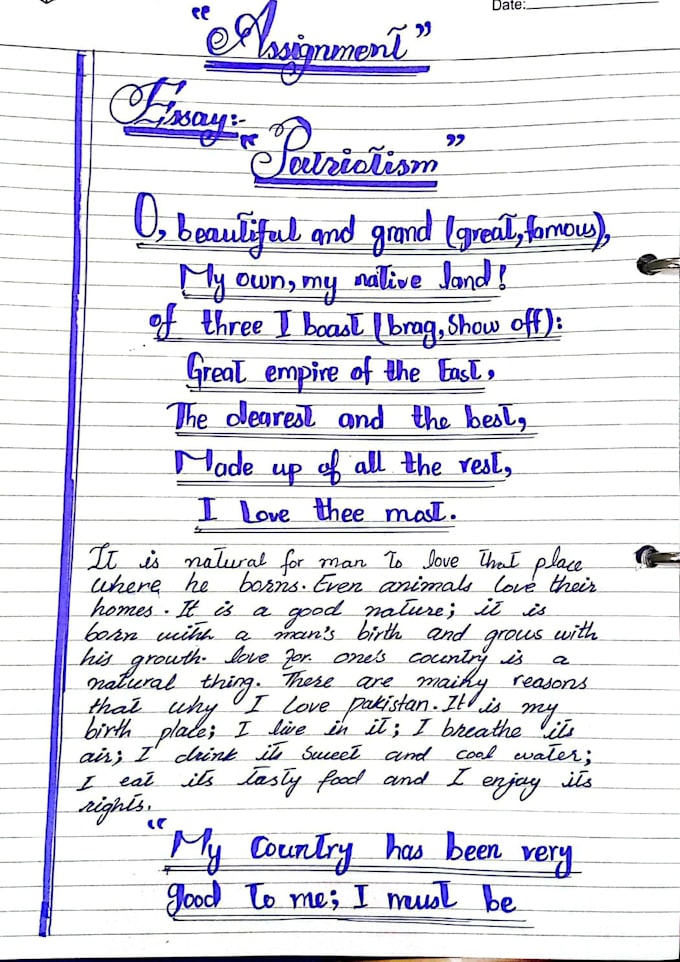 Date:
"Assignment"
Essay:-
"Patriotism"
O, beautiful and grand (great, famous),
My own, my native land!
of three I boast (brag, Show off):
Great empire of the East,
The dearest and the best,
Made up of all the rest,
I Love thee most.
It is natural for man to love that place
where he borns. Even animals love their
homes. It is a good nature; it is
born with a man's birth and grows with
his growth. love for one's country is a
natural thing. There are mainy reasons
that why I love pakistan. It is my
birth place; I live in it; I breathe its
air; I drink its sweet and cool water;
I eat its tasty food and I enjoy its
rights.
"My Country has been very
good to me; I must be